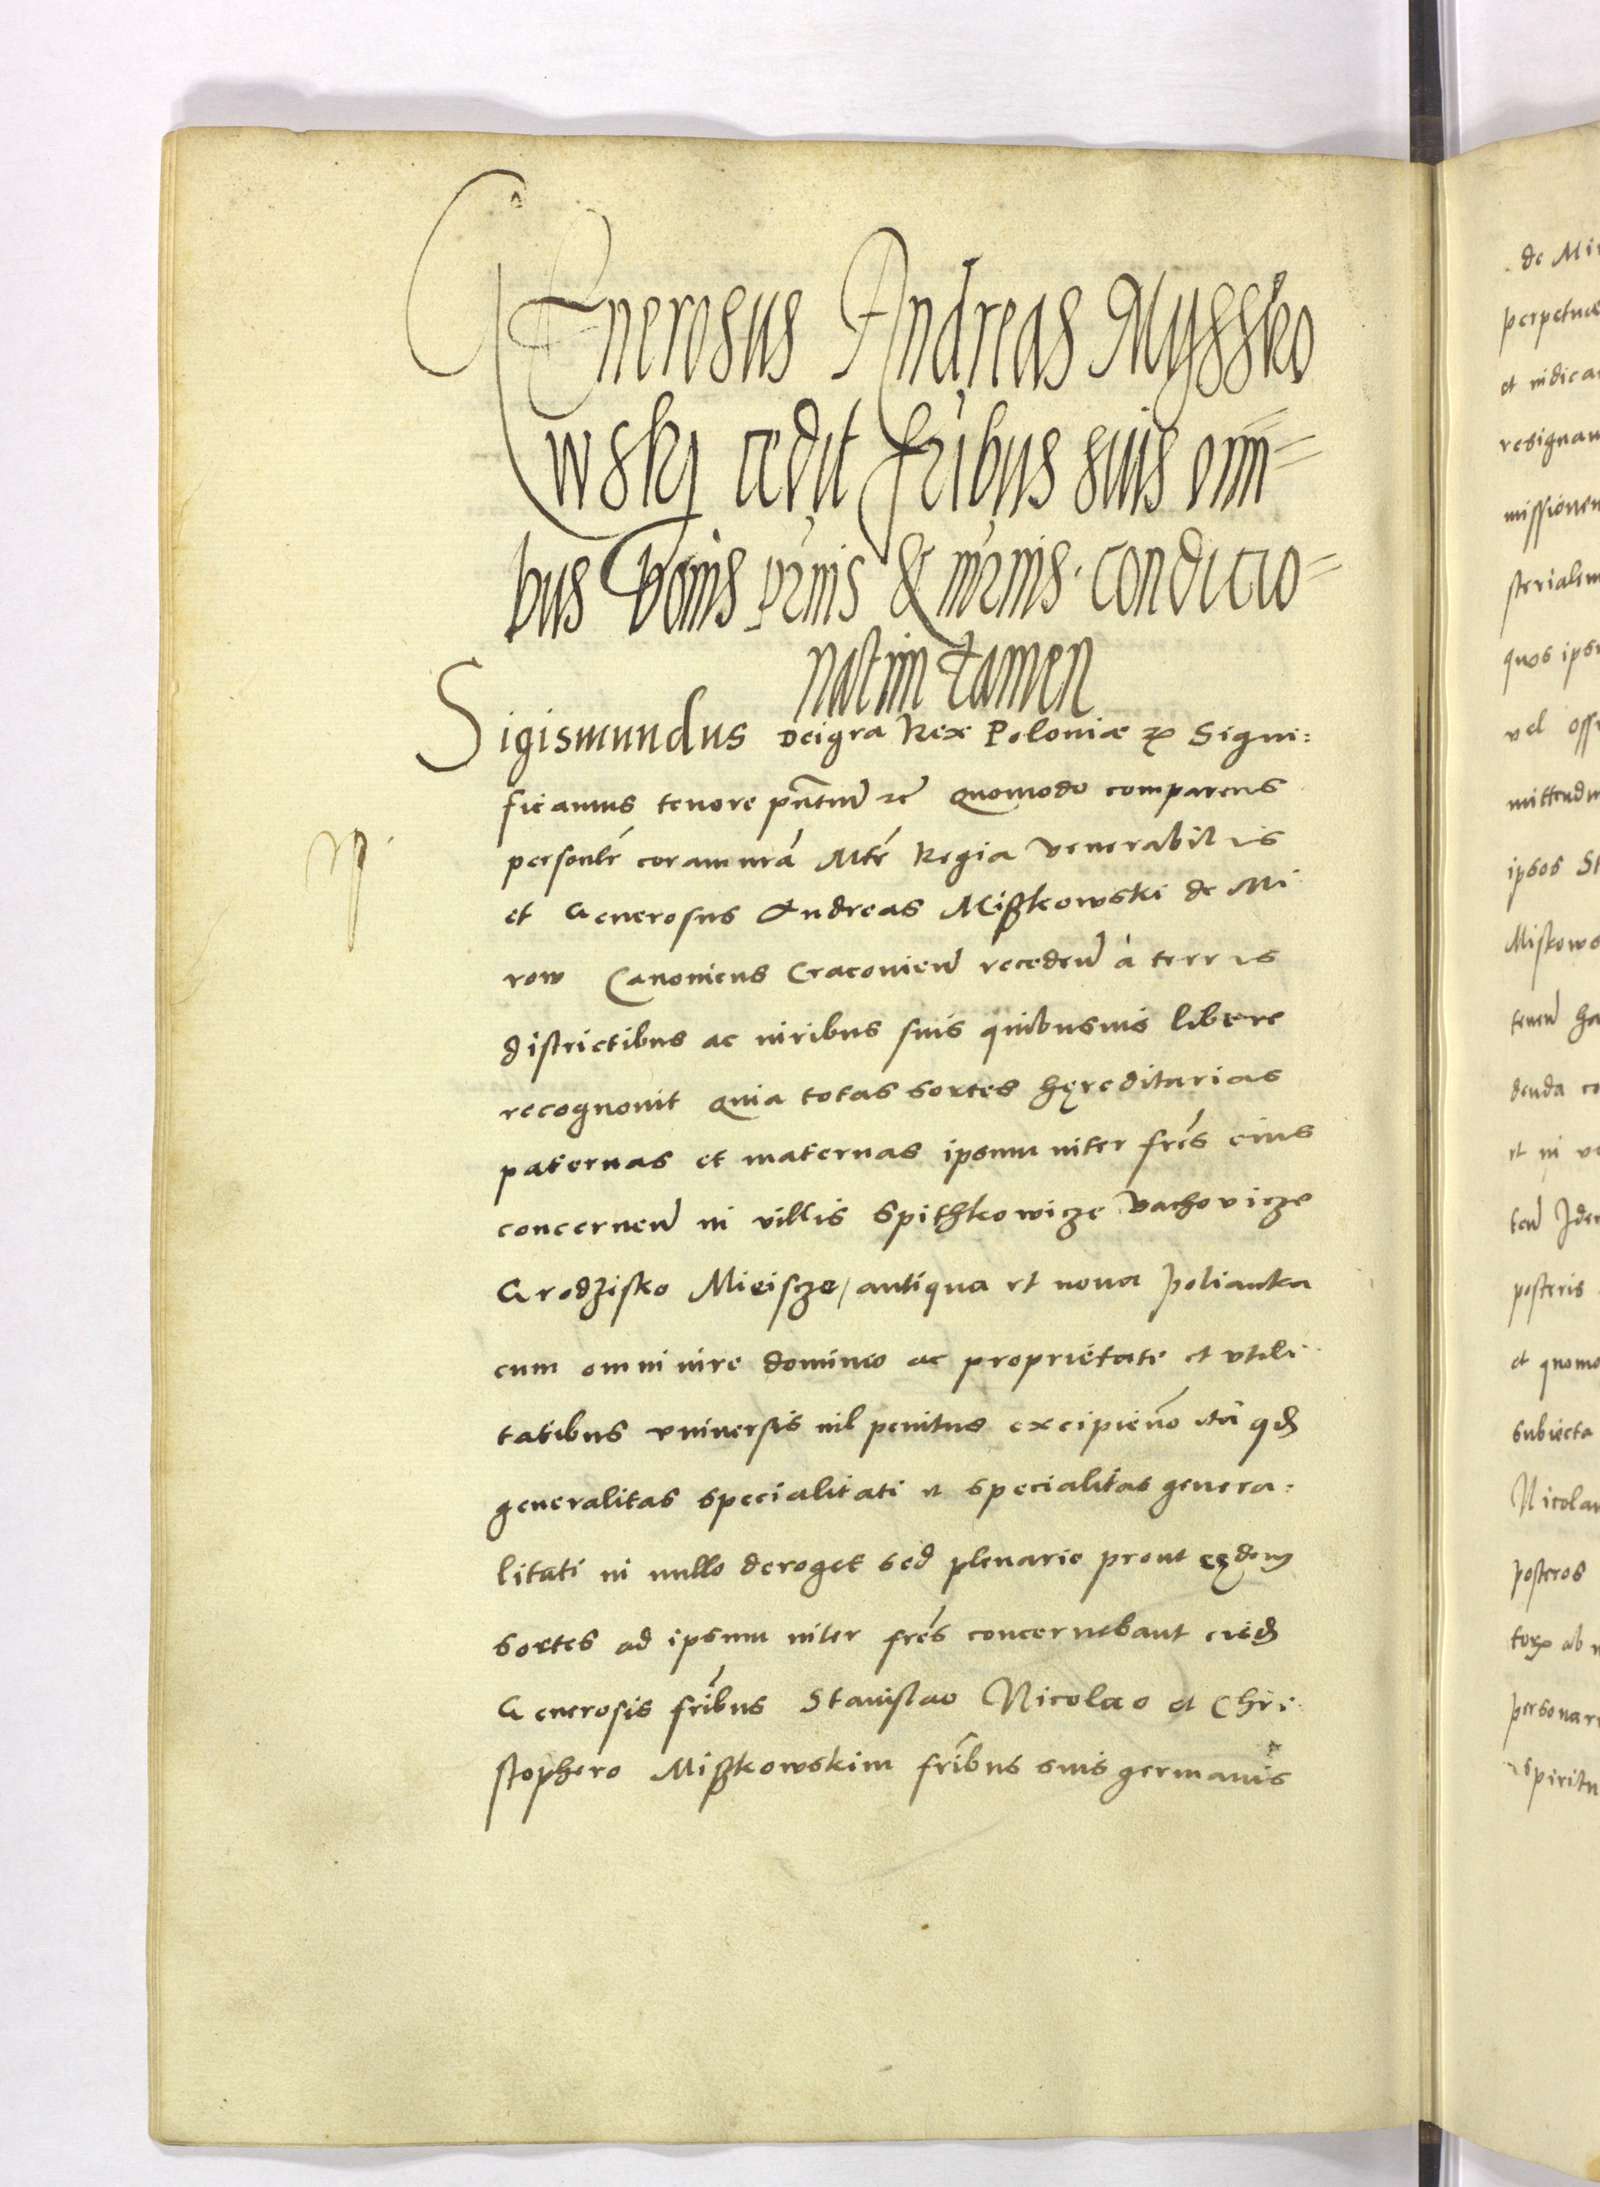 GEnerosus Andreas Myssko
wskj cedit fribus suis omi=
bus bonis prnis & mrnis. conditio=
natim tamen
Sigismundus Dei gra Rex Poloniæ Signi:
ficamus tenore pntium etc Quomodo comparens
personlr coram nra Mte Regia Venerabilis
et Generosus Andreas Mißkowski de Mi
row Canonicus Cracovien receden à terris
districtibus ac iuribus suis quibusuis libere
recognouit Quia totas sortes hęreditarias
paternas et maternas ipsum inter frēs eius
concernen in villis Spithkowicze Vachovicze
Grodzisko Mieiscze, antiqua et noua Polianka
cum omni iure dominio ac proprietate et vtili
tatibus vniuersis nil penitus excipiendo ita qd
generalitas specialitati et specialitas genera:
litati in nullo deroget sed plenarie prout eędem
sortes ad ipsum inter frēs concernebant eisd
Generosis fribus Stanislao Nicolao et Chri
stophero Mißkowskim fribus suis germanis
de Mi
perpetuæ
et
resignau
missionem
sterialem
quos ips
vel
mittendu
ipsos St
Miskows
tenen ha
denda co
et in
ten Iden
posteris
et quomo
subiecta
Nicolau
posteros
ab
personar
spiritu